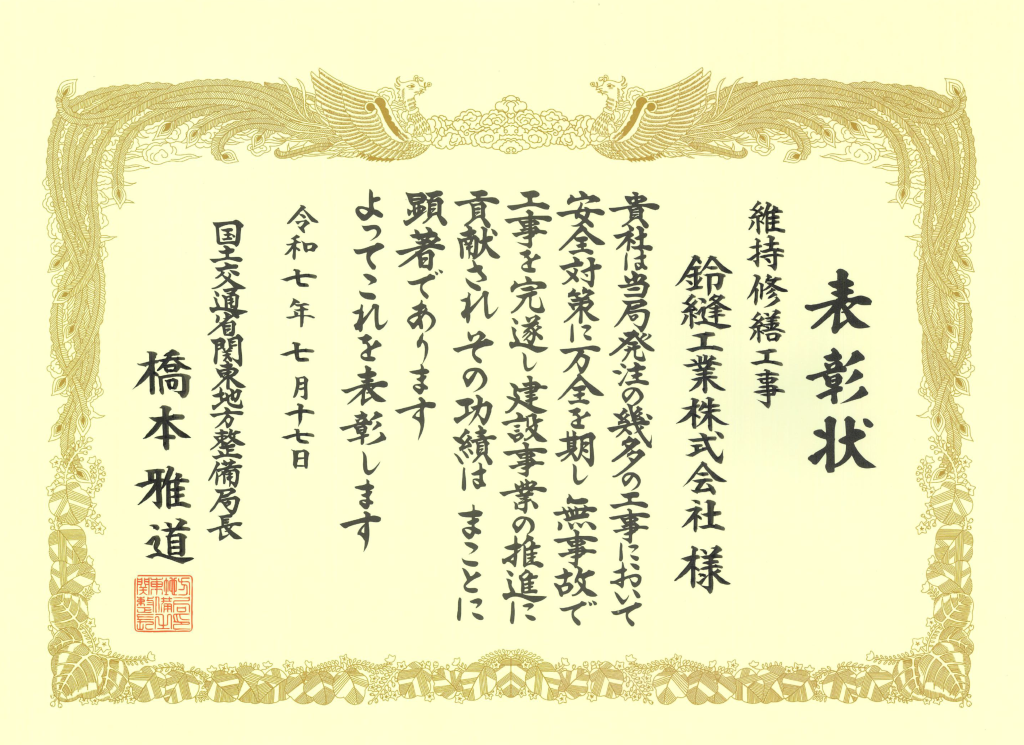 表彰状
維持修繕工事
鈴縫工業株式会社 様
貴社は当局発注の幾多の工事において
安全対策に万全を期し 無事故で
工事を完遂し 建設事業の推進に
貢献され その功績は まことに
顕著であります
よってこれを表彰します
令和七年七月十七日
国土交通省関東地方整備局長
橋本雅道